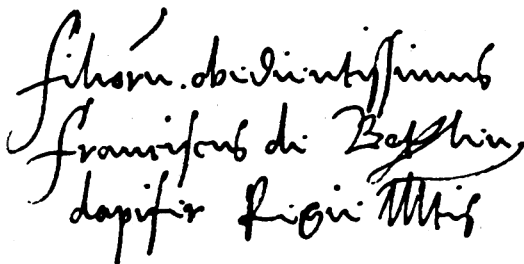 filiorū. obedientissimus
franciscus de
dapifer Regie Mtis